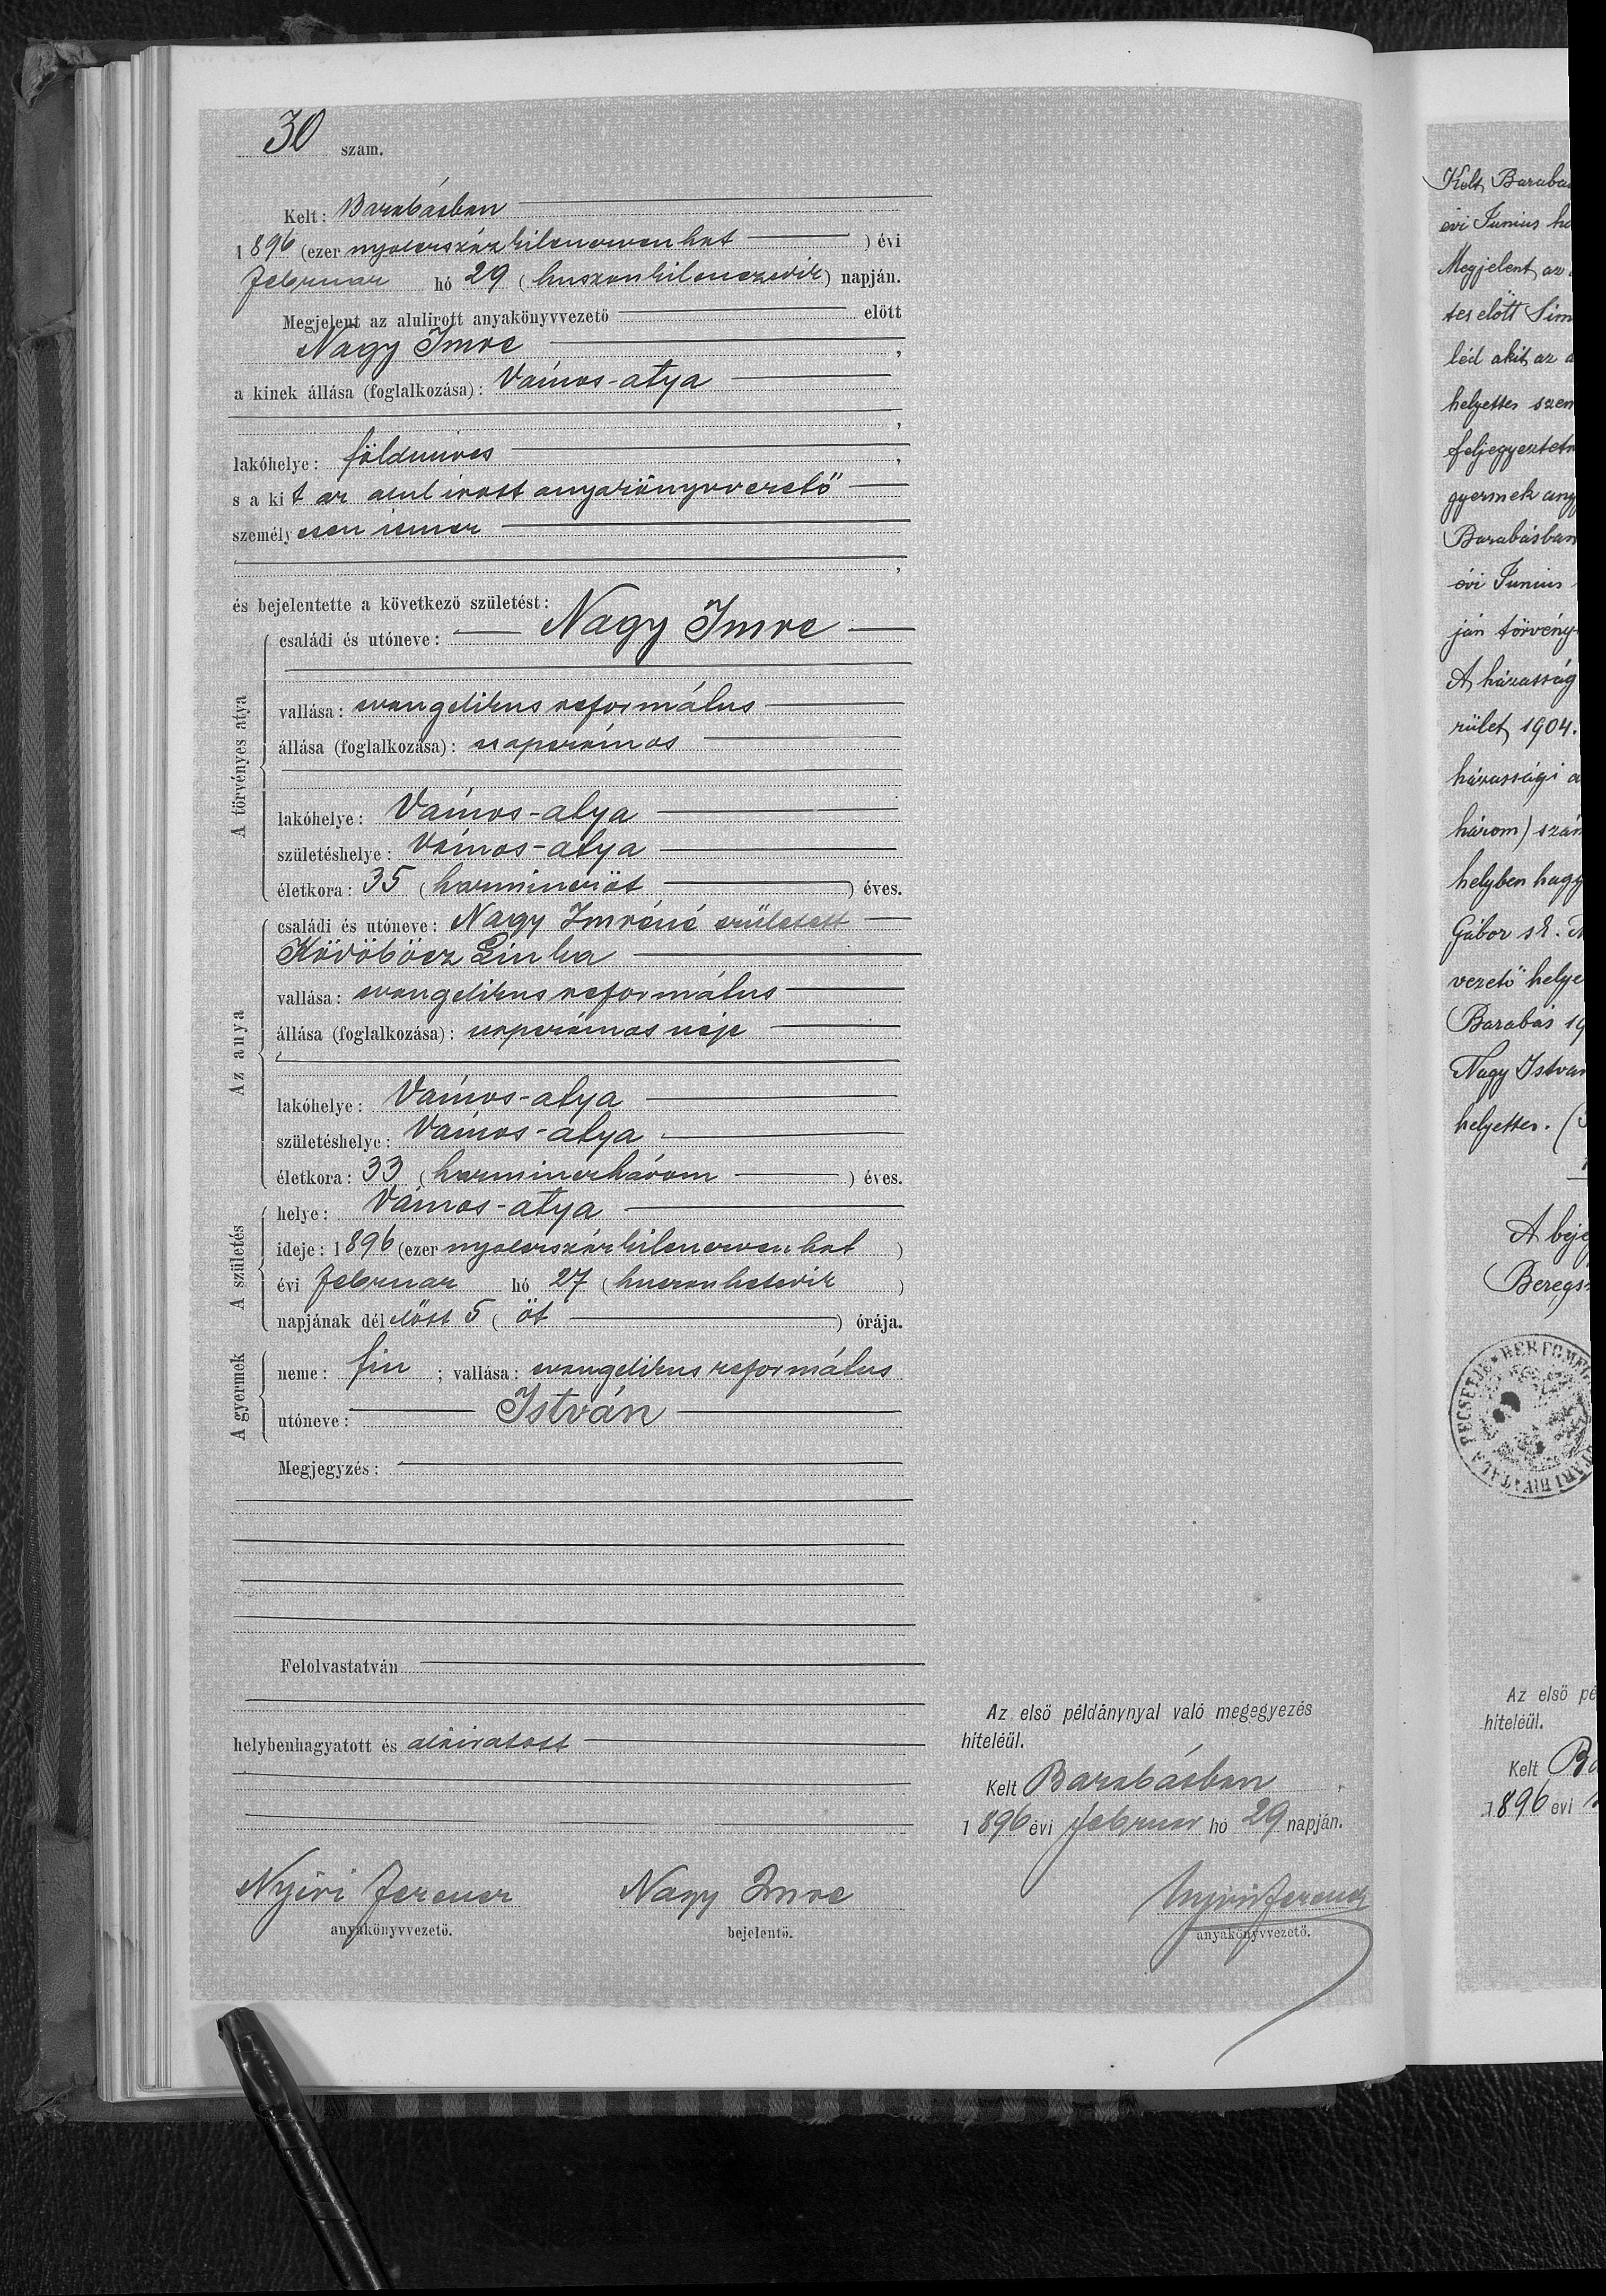 30 szam.
Kelt: Barabásban
1896 (ezer nyolczszáz kilenczven hat) évi
Februar hó 29 (huszonkilenczedik) napján.
Megjelent az alulirott anyakönyvvezető előtt
Nagy Imre,
a kinek állása (foglalkozása): Vámos-atya
,
lakóhelye: földmives,
s a kit az alul irott anyakönyvvezető
személyesen ismer
,
és bejelentette a következő születést:
A törvényes atya
családi és utóneve: Nagy Imre
vallása: evangelikus református
állása (foglalkozása): napszámos
lakóhelye: Vámos-atya
születéshelye: Vámos-atya
életkora: 35 (harminczöt) éves.
Az anya
családi és utóneve: Nagy Imréné született
Köröböcz Linka
vallása: evangelikus református
állása (foglalkozása): napszámos neje
lakóhelye: Vámos-atya
születéshelye: Vámos-atya
életkora: 33 (harminczhárom) éves.
A születés
helye: Vámos-atya
ideje: 1896 (ezer nyolczszáz kilenczven hat)
évi Februar hó 27 (huszonhetedik)
napjának dél előtt 5 (öt) órája.
A gyermek
neme: fiu; vallása: evangelikus református
utóneve: István
Megjegyzés:
Felolvastatván
helybenhagyatott és aláiratott
Nyiri Ferencz
anyakönyvvezető.
Nagy Imre
bejelentő.
Az első példánynyal való megegyezés
hiteléül.
Kelt Barabásban.
1896 évi februar hó 29 napján.
Nyiri Ferencz
anyakönyvvezető.
Kelt Baraba
évi Junius hó
Megjelent az
tes előtt Sim
léd akit az a
helyettes szem
feljegyeztet
gyermek any
Barabásban
évi Junius
ján törvény
A házasság
rület 1904.
házassági a
három) szám
helyben hagy
Gábor sk.
vezető helye
Barabás 19
Nagy Istvan
helyettes. (
A beje
Beregs
Az első pé
hiteléül.
Kelt Ba
1896 évi